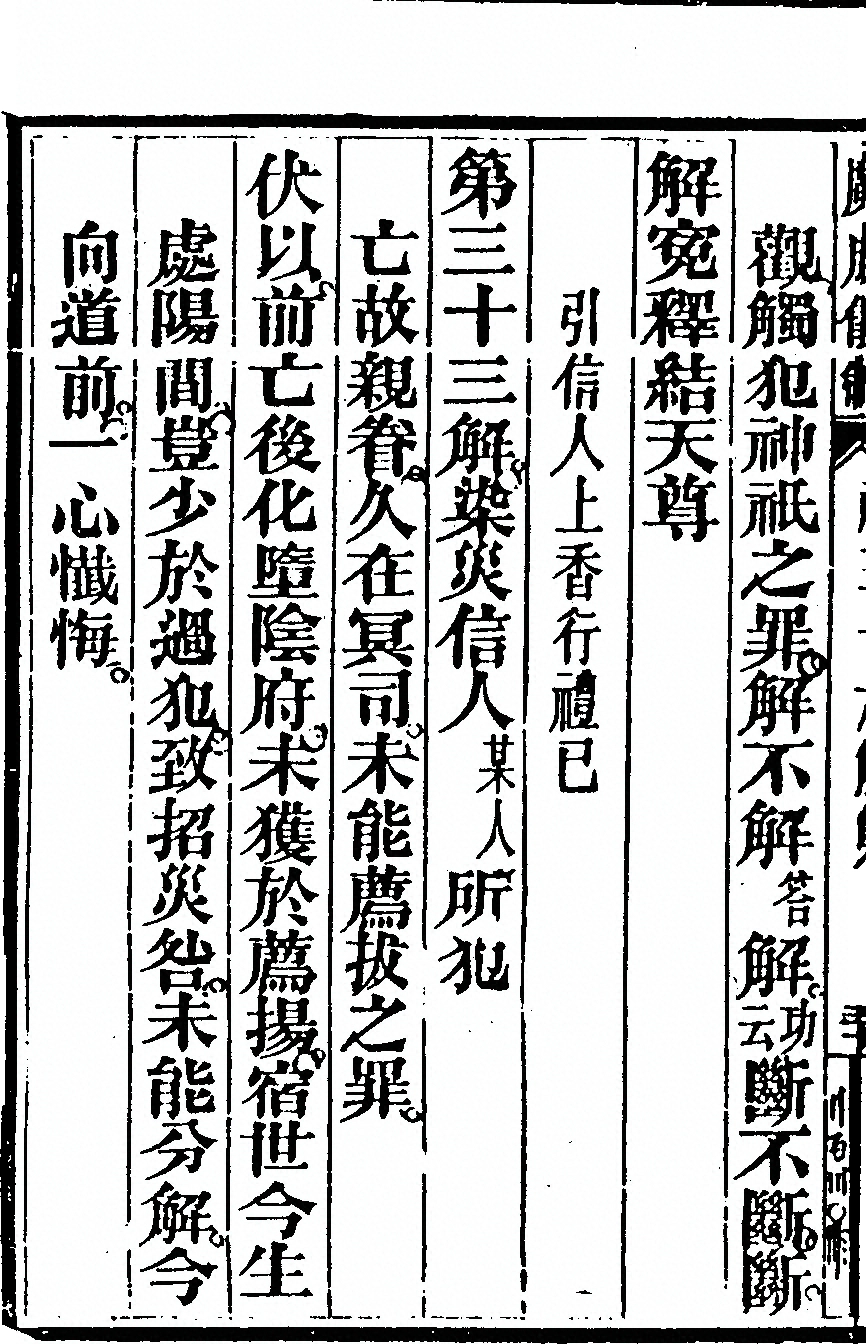 觀觸犯神祇之罪解不解答解功云斷不斷斷
解寃釋結天尊
引信人上香行禮已
第三十三解染災信人某人所犯
亡故親眷久在冥司未能薦拔之罪
伏以前亡後化墮陰府未獲於薦揚宿世今生
處陽間豈少於過犯致招災咎未能分解今
向道前一心懺悔